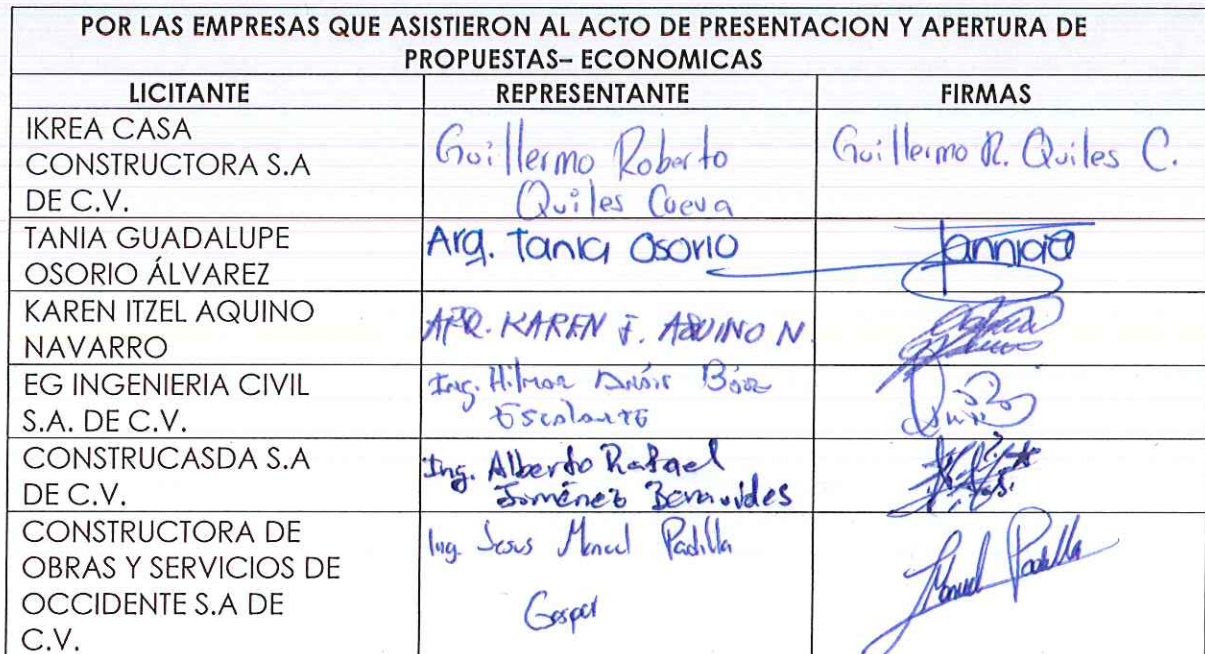 POR LAS EMPRESAS QUE ASISTIERON AL ACTO DE PRESENTACION Y APERTURA DE
PROPUESTAS– ECONOMICAS
LICITANTE REPRESENTANTE FIRMAS
IKREA CASA
CONSTRUCTORA S.A
DE C.V.
Guillermo Roberto
Quiles Cueva
Guillermo R. Quiles C.
TANIA GUADALUPE
OSORIO ÁLVAREZ
Arq. Tania Osorio
KAREN ITZEL AQUINO
NAVARRO
ARQ. KAREN I. AQUINO N.
EG INGENIERIA CIVIL
S.A. DE C.V.
Ing. Báez
Escalante
CONSTRUCASDA S.A
DE C.V.
Ing. Alberto Rafael
Jiménez Benavides
CONSTRUCTORA DE
OBRAS Y SERVICIOS DE
OCCIDENTE S.A DE
C.V.
Ing. Jesus Manuel Padilla
Gaspar
Manuel Padilla